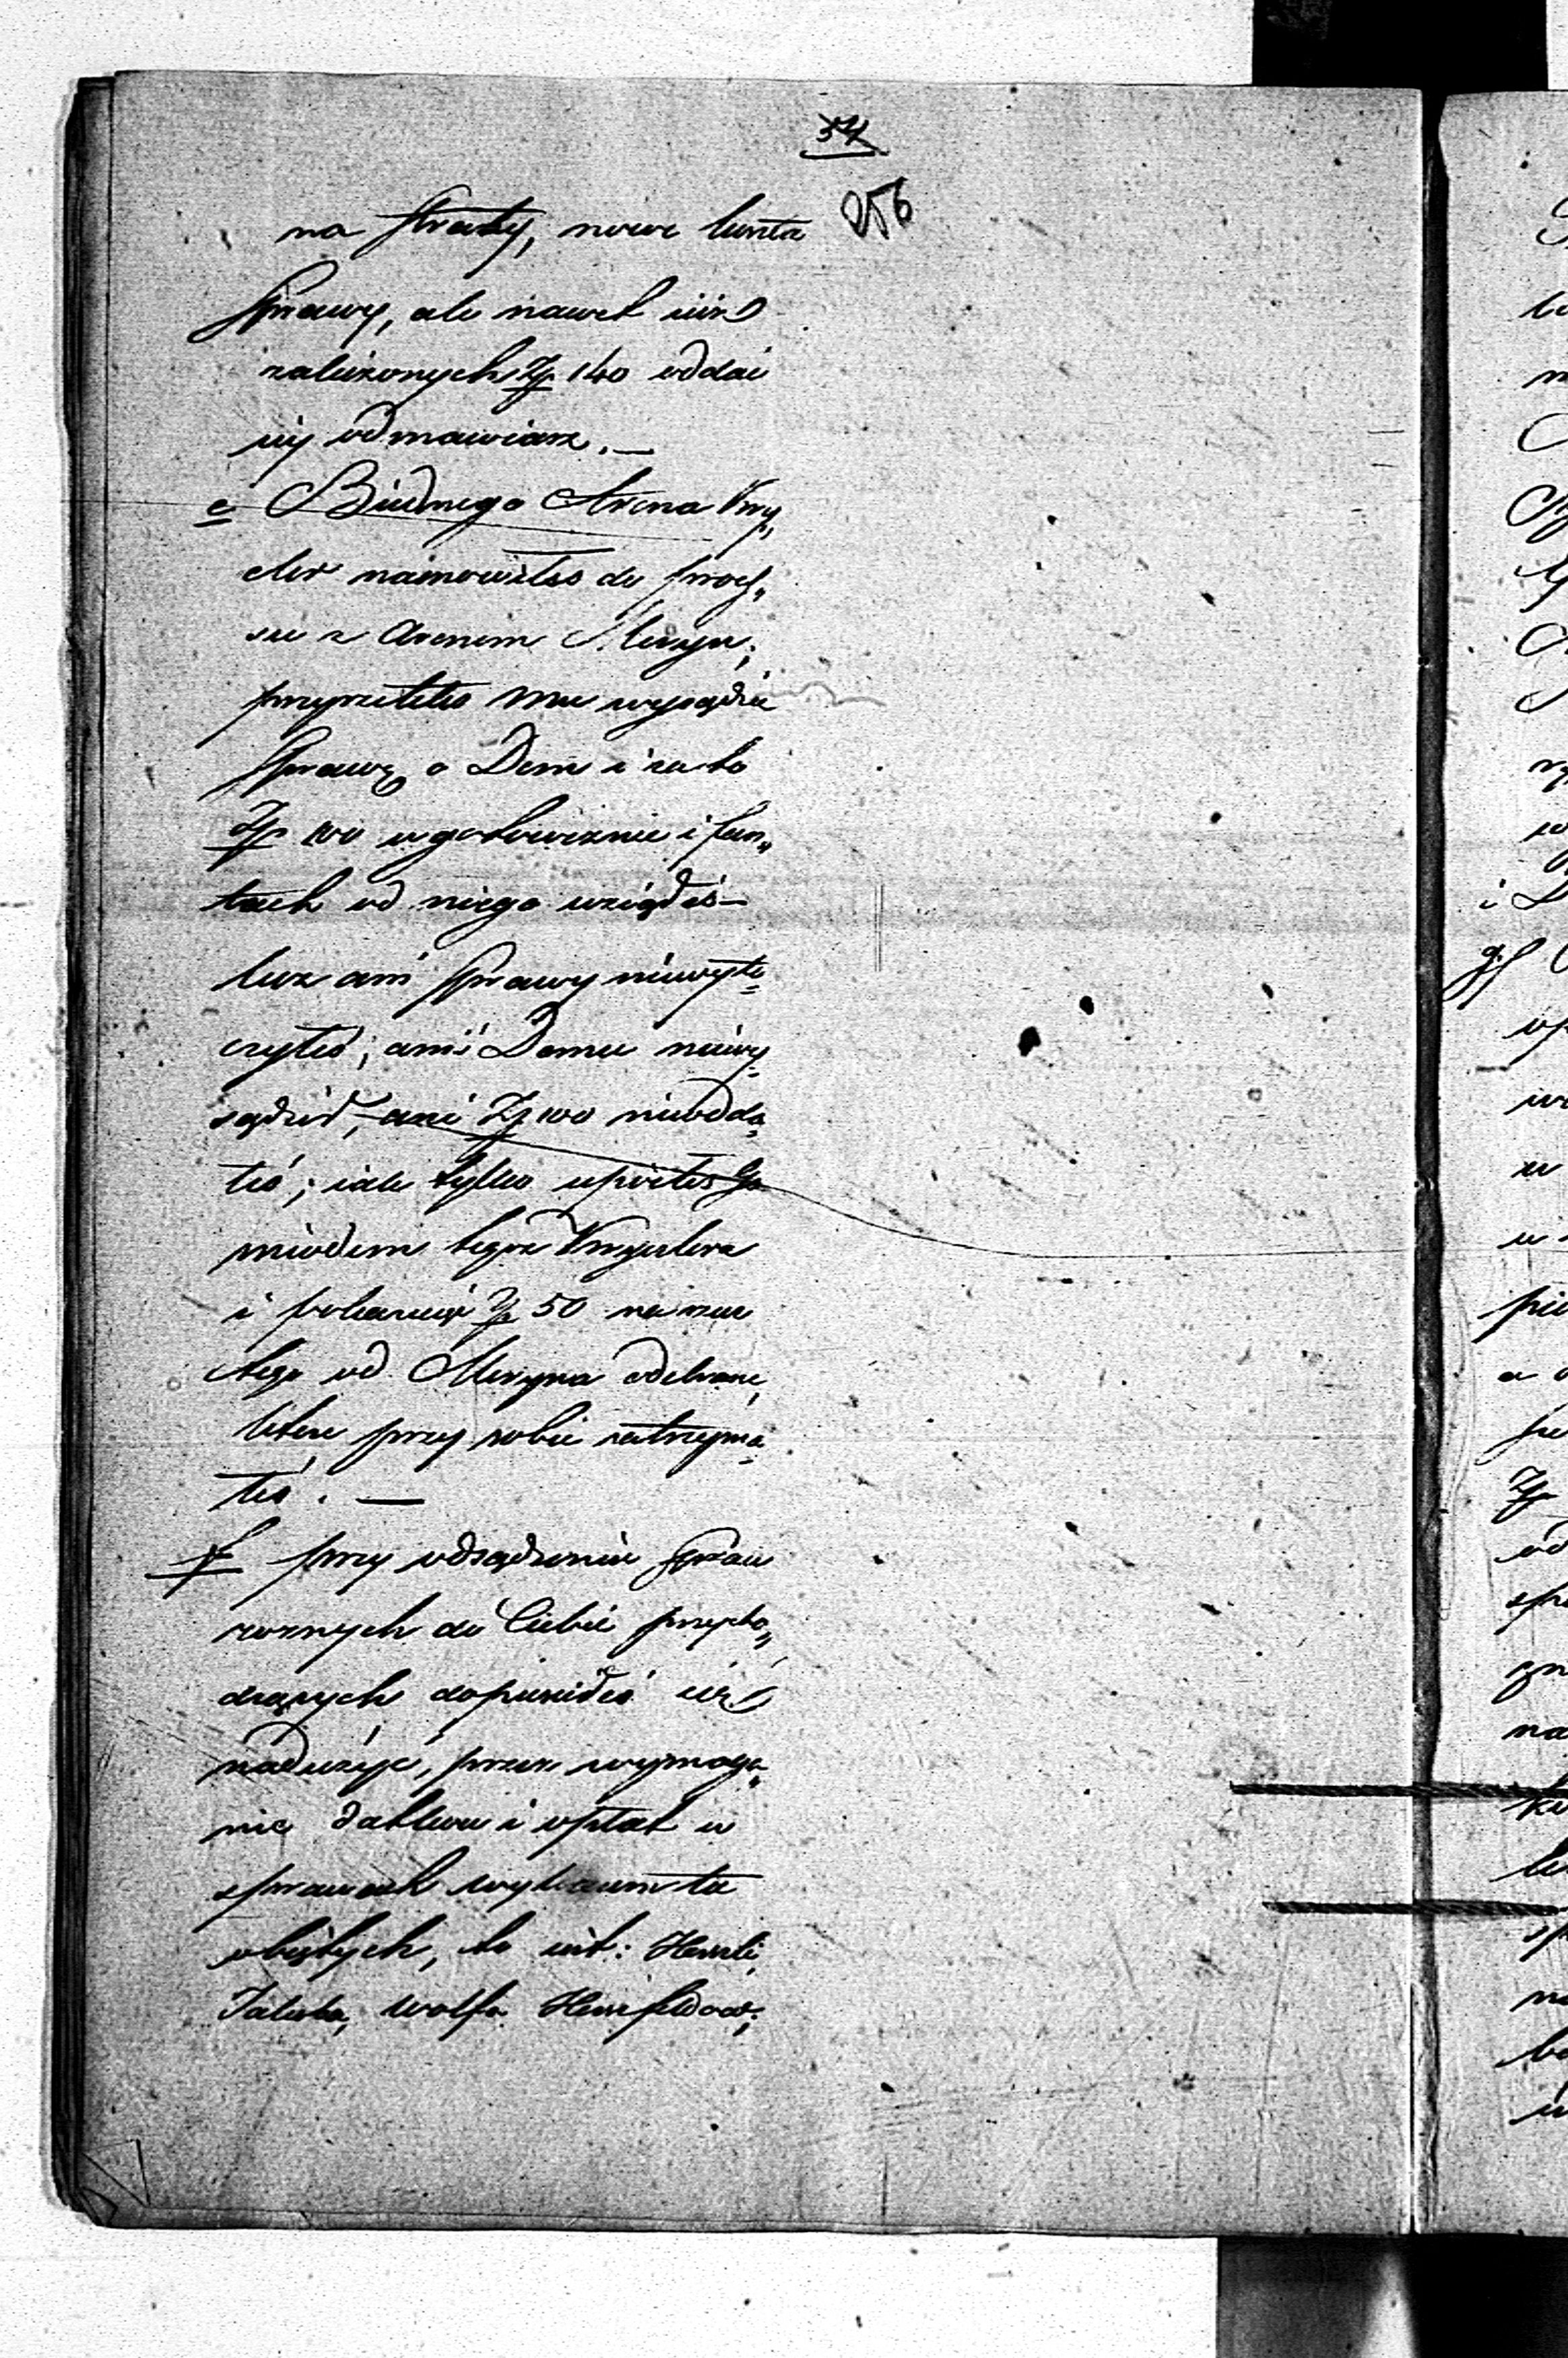 54
256
na straty, nowe kunta
Sprawy, ale nawet iuż
zaliczonych Zp 140 oddać
iey odmawiasz. —
e Biednego Arona Kry„
cler namowiłeś do proce„
su z Aronem Meryn;
przyrzekłeś mu wysądzić
Sprawę o Dom i za to
Zp 100 w gotowiznie i fan„
tach od niego wziąłeś —
lecz ani Sprawy niewyto=
czyłeś, ani Domu niewy=
sądził, ani Zp 100 nieodda=
łeś; iak tylko upoiłeś Go
miodem tegoż
i pokazując Zp 50 na rzecz
tego od Meryna odebrane,
które przy sobie zatrzyma=
łeś. —
f przy odsądzeniu Spraw
rożnych do Ciebie przycho„
dzących dopuściłeś się
nadużyć, przez wymaga„
nie datków i opłat w
sprawach wykazem tu
obiętych, to iest: Herszli,
Jakuba, Wolfa